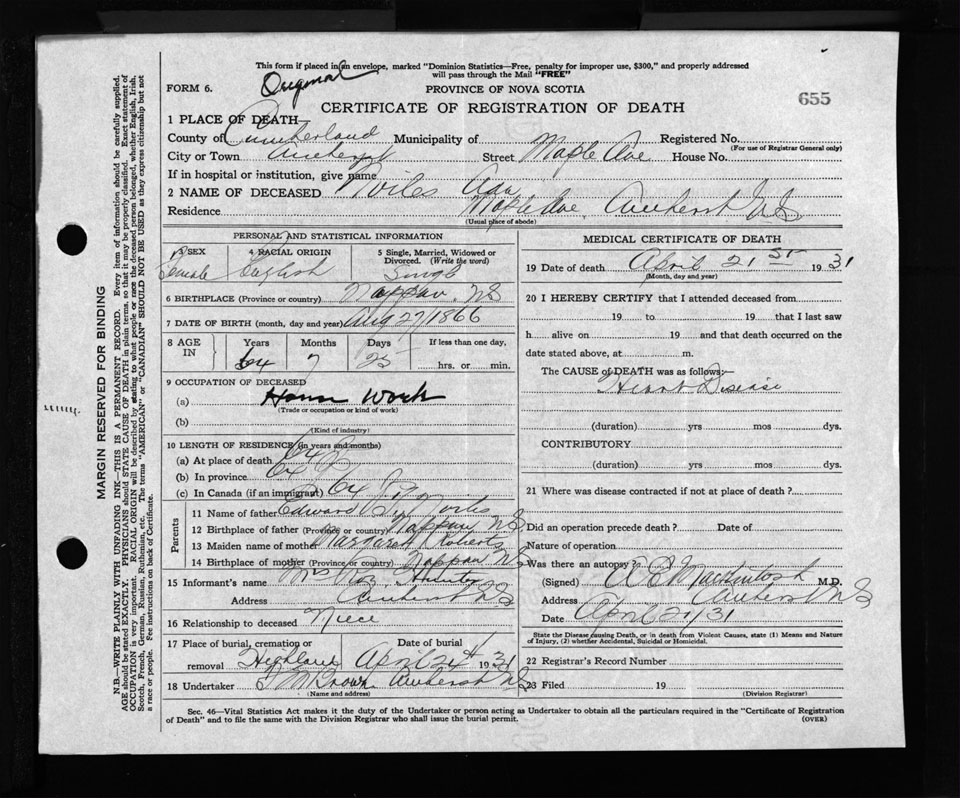 This form if placed in an envelope, marked "Dominion Statistics—Free, penalty for improper use, $300," and properly addressed
will pass through the Mail "FREE"
FORM 6.
Original
PROVINCE OF NOVA SCOTIA
655
CERTIFICATE OF REGISTRATION OF DEATH
1 PLACE OF DEATH
County of Cumberland Municipality of Registered No.
(For use of Registrar General only)
City or Town Amherst Street Maple Ave House No.
If in hospital or institution, give name
2 NAME OF DECEASED Noiles Ada
Residence Maple Ave, Amherst NS
(Usual place of abode)
PERSONAL AND STATISTICAL INFORMATION
3 SEX 4 RACIAL ORIGIN 5 Single, Married, Widowed or
Divorced. (Write the word)
Female English Single
6 BIRTHPLACE (Province or country) Nappan, NS
7 DATE OF BIRTH (month, day and year) Aug 27/1866
8 AGE IN Years Months Days If less than one day,
64 7 25 hrs. or min.
9 OCCUPATION OF DECEASED
(a) House Work
(Trade or occupation or kind of work)
(b)
(Kind of industry)
10 LENGTH OF RESIDENCE (in years and months)
(a) At place of death
(b) In province 64
(c) In Canada (if an immigrant) 64
Parents
11 Name of father Edward Noiles
12 Birthplace of father (Province or country) Nappan NS
13 Maiden name of mother Margaret Roberts
14 Birthplace of mother (Province or country) Nappan NS
15 Informant's name Mrs Roy
Address Amherst NS
16 Relationship to deceased Niece
17 Place of burial, cremation or removal Date of burial
Highland April 24th 1931
18 Undertaker Brown Amherst NS
(Name and address)
MEDICAL CERTIFICATE OF DEATH
19 Date of death April 21st 1931
(Month, day and year)
20 I HEREBY CERTIFY that I attended deceased from
19 to 19 that I last saw
h alive on 19 and that death occurred on the
date stated above, at m.
The CAUSE of DEATH was as follows:—
Heart Disease
(duration) yrs mos dys.
CONTRIBUTORY
(duration) yrs mos dys.
21 Where was disease contracted if not at place of death?
Did an operation precede death? Date of
Nature of operation
Was there an autopsy?
(Signed) MacKintosh M.D.
Address Amherst NS
Date April 21/31
State the Disease causing Death, or in death from Violent Causes, state (1) Means and Nature
of Injury, (2) whether Accidental, Suicidal or Homicidal.
22 Registrar's Record Number
23 Filed 19
(Division Registrar)
Sec. 46—Vital Statistics Act makes it the duty of the Undertaker or person acting as Undertaker to obtain all the particulars required in the "Certificate of Registration
of Death" and to file the same with the Division Registrar who shall issue the burial permit.
(OVER)
MARGIN RESERVED FOR BINDING
N.B.—WRITE PLAINLY WITH UNFADING INK—THIS IS A PERMANENT RECORD. Every item of information should be carefully supplied.
AGE should be stated EXACTLY. PHYSICIANS should STATE CAUSE OF DEATH in plain terms, so that it may be properly classified. Exact statement of
OCCUPATION is very important. RACIAL ORIGIN will be described by stating to what people or race the deceased person belonged, whether English, Irish,
Scotch, French, German, Russian, Ruthenian, etc. The terms "AMERICAN" or "CANADIAN" SHOULD NOT BE USED as they express citizenship but not
a race or people. Fee instructions on back of Certificate.